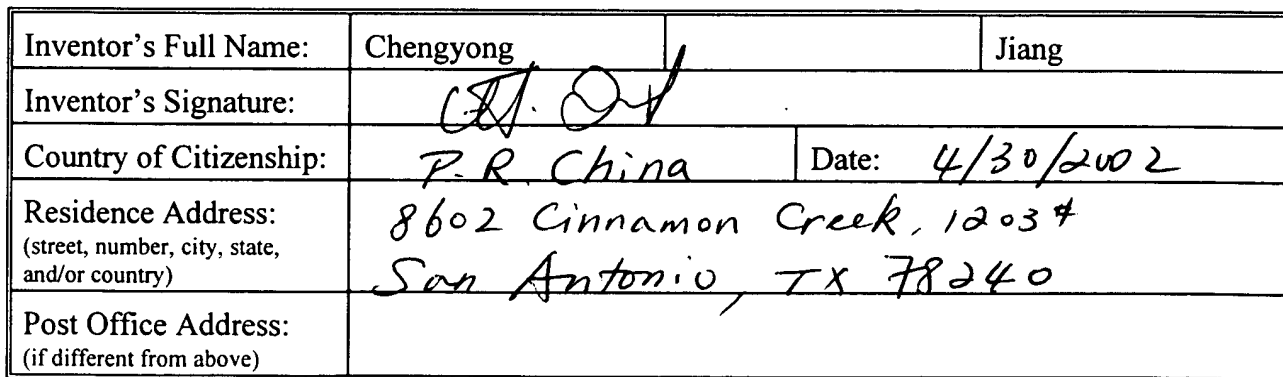 Inventor's Full Name: Chengyong Jiang
Inventor's Signature:
Country of Citizenship: P.R. China Date: 4/30/2002
Residence Address: 8602 Cinnamon Creek, 1203#
(street, number, city, state,
and/or country) San Antonio, TX 78240
Post Office Address:
(if different from above)